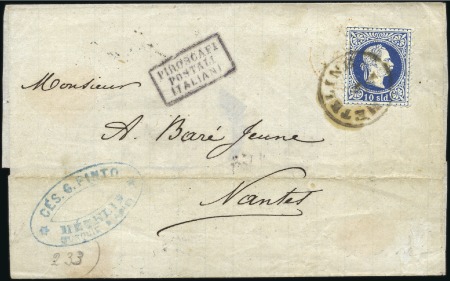 PIROSCAFI
POSTALI
ITALIANI
METELINE
10 sld
Monsieur
A. Baré Jeune
Nantes
CÉS. G. PINTO
233